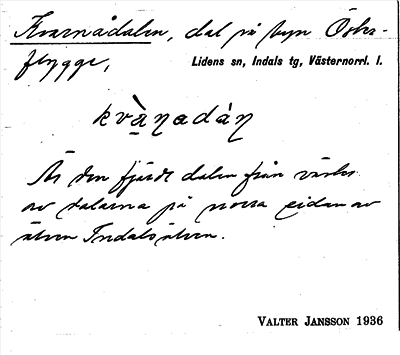 Kvarnådalen, dal på byn Öster-
flygge, Lidens sn, Indals tg, Västernorrl. l.
kvà̱ṇadáṇ
Är den fjärde dalen från väster
av dalarna på norra sidan av
älven Indalsälven.
VALTER JANSSON 1936